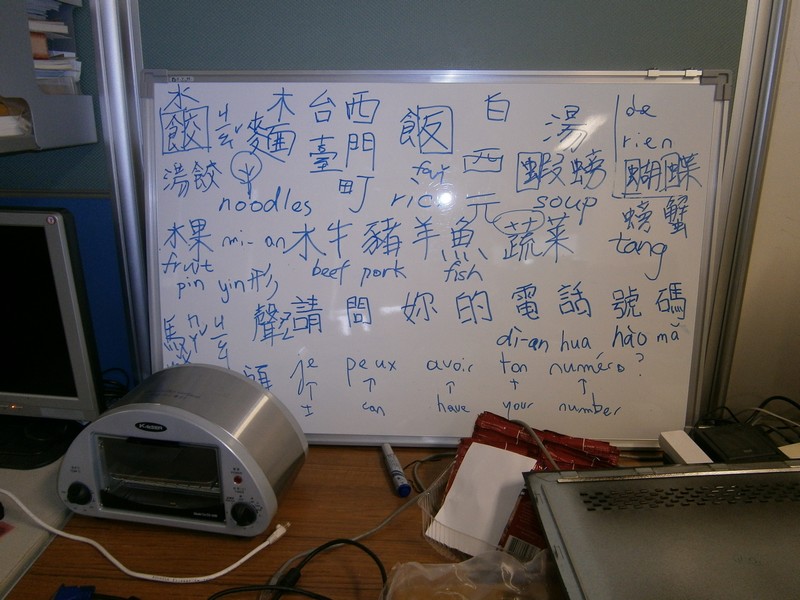 水 木 台 西 白 湯 de
餃 ㄐㄧㄠ 麵 臺 門 飯 西 蝦 螃 rien
湯餃 町 fan 元 蝴蝶
noodles rice soup 螃蟹
水果 mi-an 水牛 豬 羊 魚 蔬菜 tang
fruit beef pork fish
pin yin 形
馬 聲 請 問 妳 的 電 話 號 碼
di-an hua hào mǎ
頭 je peux avoir ton numéro?
I can have your number